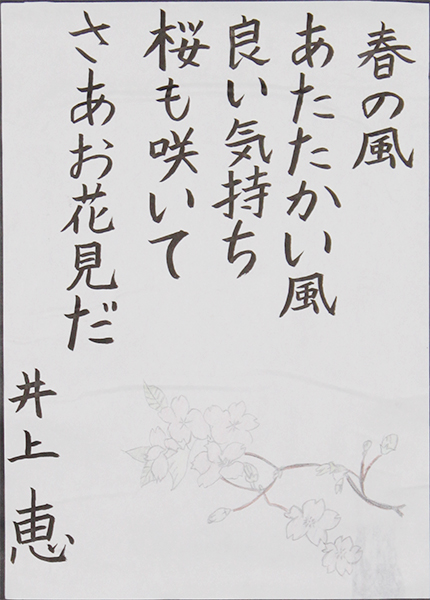 春の風
あたたかい風
良い気持ち
桜も咲いて
さあお花見だ
井上恵